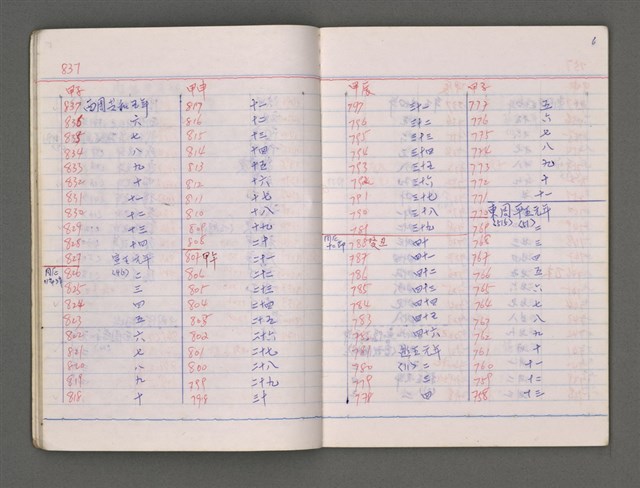 837
6
甲子 甲申
837 西周共和五年 817 十一
836 六 816 十二
835 七 815 十三
834 八 814 十四
833 九 813 十五
832 十 812 十六
831 十一 811 十七
830 十二 810 十八
829 十三 809 十九
828 十四 808 二十
827 宣王元年 807 甲午 二一
826 (46) 二 806 二二
825 三 805 二三
824 四 804 二四
823 五 803 二五
822 六 802 二六
821 七 801 二七
820 八 800 二八
819 九 799 二九
818 十 798 三十
甲辰 甲子
797 三一 777 五
796 三二 776 六
795 三三 775 七
794 三四 774 八
793 三五 773 九
792 三六 772 十
791 三七 771 十一
790 三八 770 東周平王元年
789 三九 769 (51) 二
788 四十 768 三
787 四一 767 四
786 四二 766 五
785 四三 765 六
784 四四 764 七
783 四五 763 八
782 四六 762 九
781 幽王元年 761 十
780 (11) 二 760 十一
779 三 759 十二
778 四 758 十三